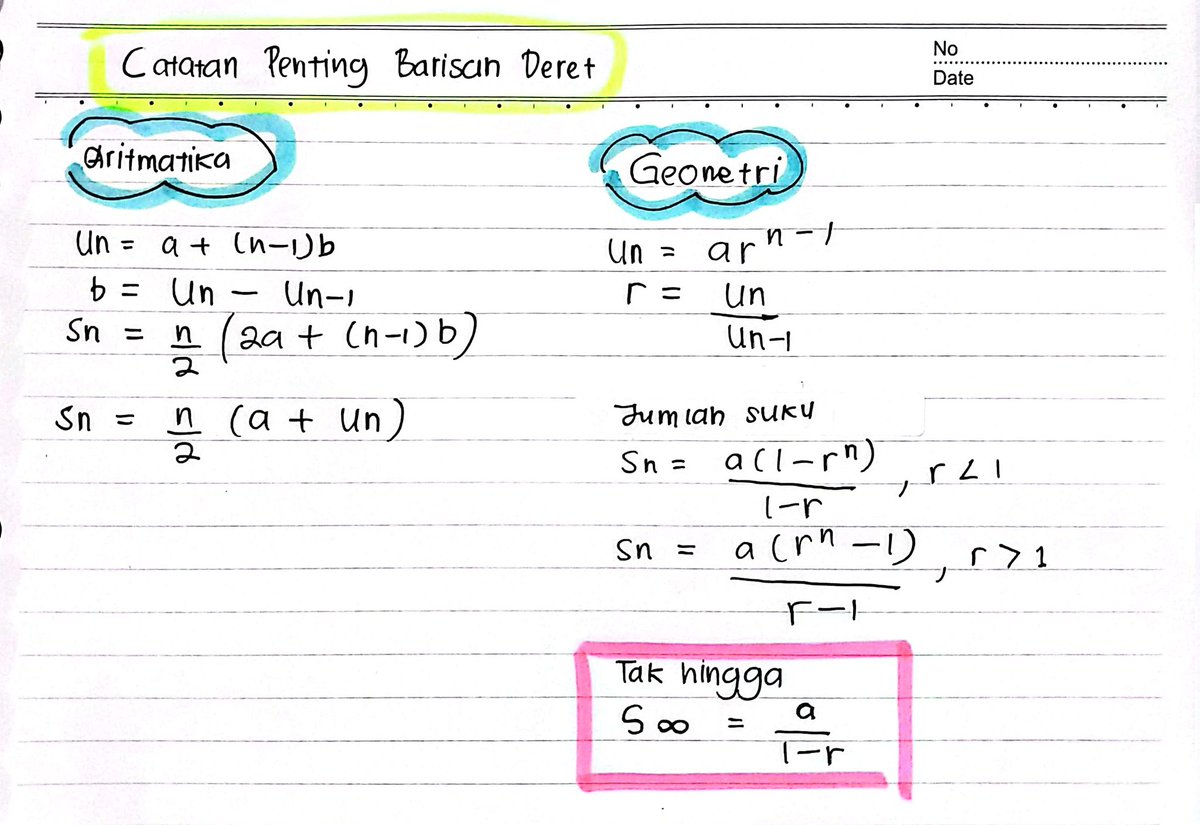 Catatan Penting Barisan Deret
No
Date
Aritmatika
Un = a + (n-1)b
b = Un - Un-1
Sn = n/2 (2a + (n-1)b)
Sn = n/2 (a + Un)
Geometri
Un = ar^n-1
r = Un/Un-1
Jumlah suku
Sn = a(1-r^n)/1-r , r < 1
Sn = a(r^n-1)/r-1 , r > 1
Tak hingga
S∞ = a/1-r